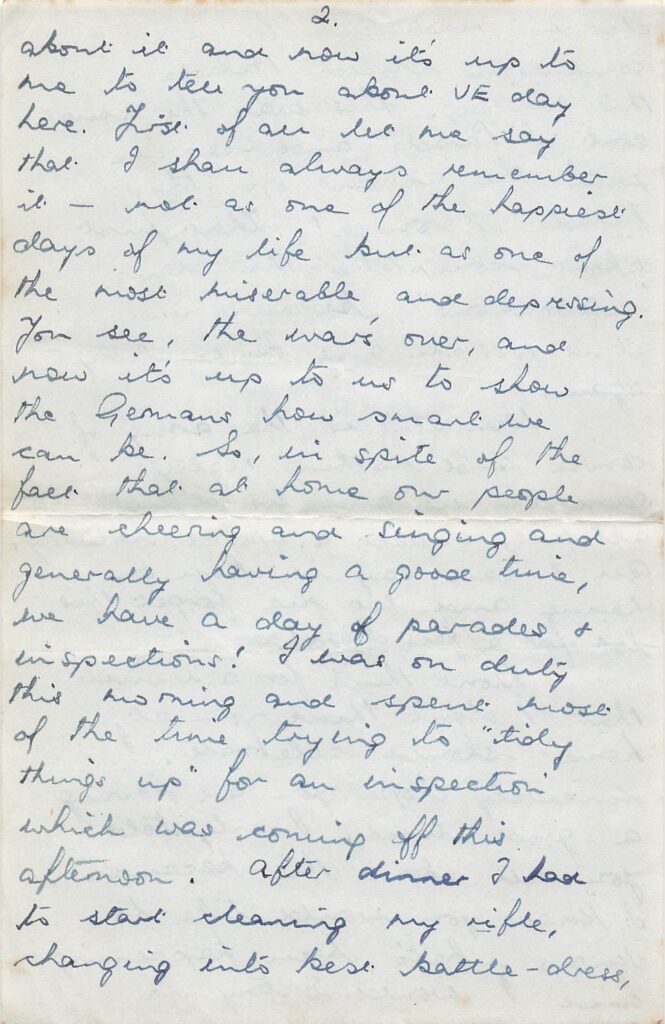 2.
about it and now it's up to
me to tell you about VE day
here. First of all let me say
that I shall always remember
it – not as one of the happiest
days of my life but as one of
the most miserable and depressing.
You see, the war's over, and
now it's up to us to show
the Germans how smart we
can be. So, in spite of the
fact that at home our people
are cheering and singing and
generally having a good time,
we have a day of parades &
inspections! I was on duty
this morning and spent most
of the time trying to "tidy
things up" for an inspection
which was coming off this
afternoon. After dinner I had
to start cleaning my rifle,
changing into best battle-dress,